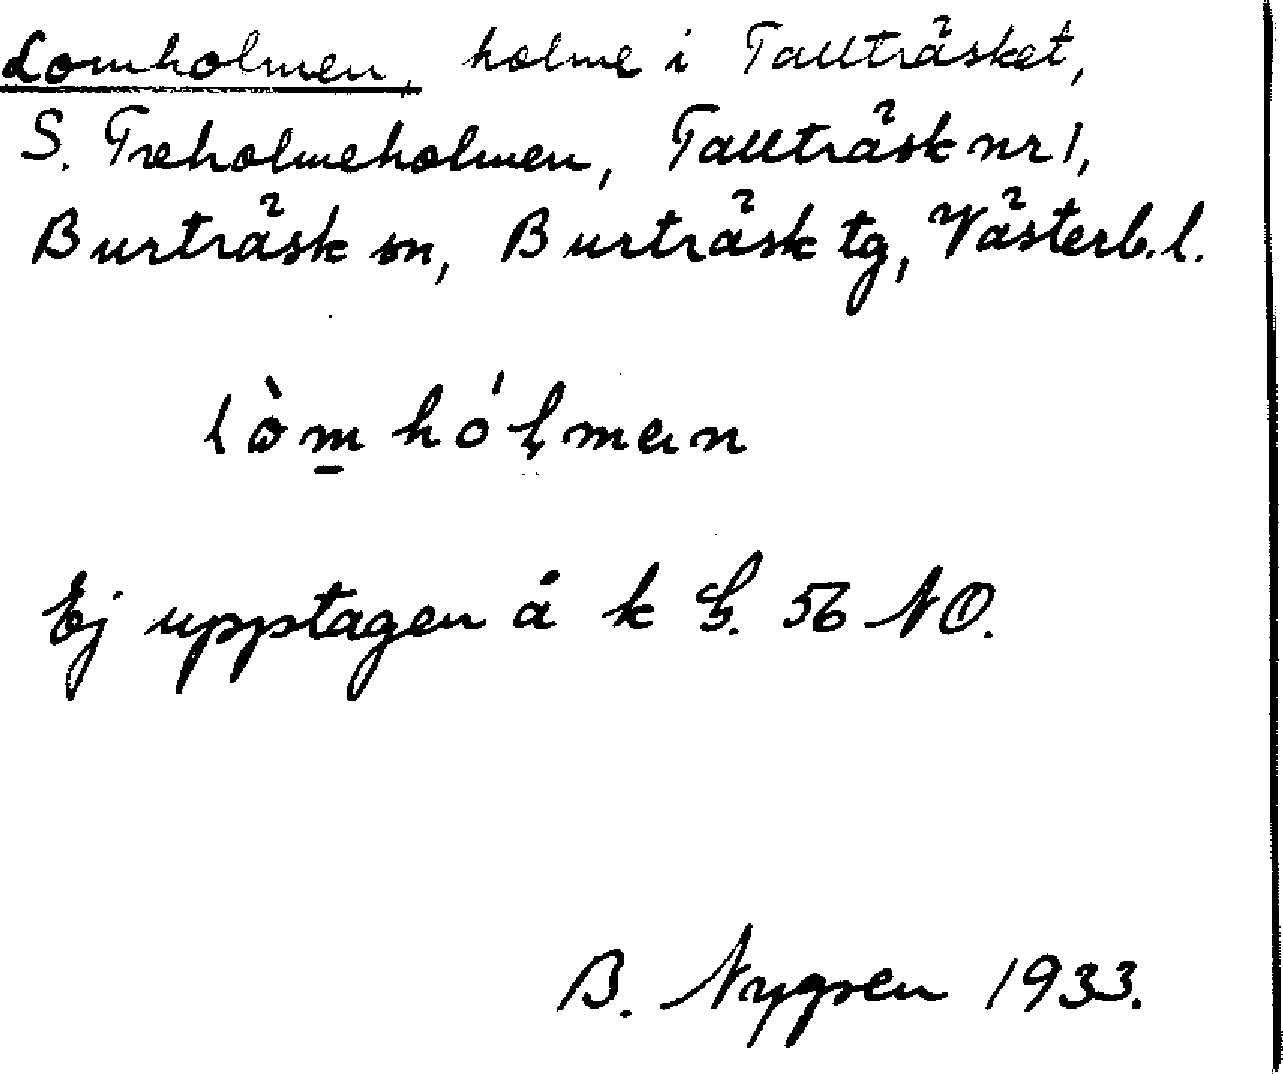 Lomholmen, holme i Tallträsket,
S. Treholmeholmen, Tallträsk nr 1,
Burträsk sn, Burträsk tg, Västerb. l.
lòm hólmɐn
Ej upptagen å k bl. 56 NO.
B. Nygren 1933.